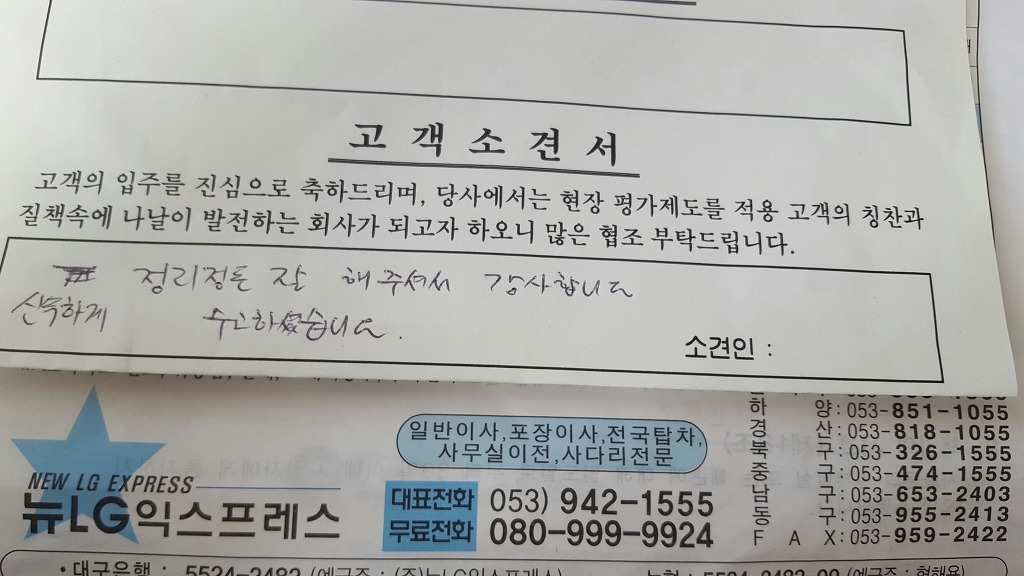 고객소견서
고객의 입주를 진심으로 축하드리며, 당사에서는 현장 평가제도를 적용 고객의 칭찬과
질책속에 나날이 발전하는 회사가 되고자 하오니 많은 협조 부탁드립니다.
정리정돈 잘 해주셔서 감사합니다
신속하게 수고하셨습니다.
소견인 :
일반이사,포장이사,전국탑차,
사무실이전,사다리전문
NEW LG EXPRESS
뉴LG익스프레스
대표전화 053) 942-1555
무료전화 080-999-9924
하 양:053-851-1055
경 산:053-818-1055
북 구:053-326-1555
중 구:053-474-1555
남 구:053-653-2403
동 구:053-955-2413
F A X:053-959-2422
•대구은행 : 5524-2482 (예금주 : (주)뉴LG익스프레스)